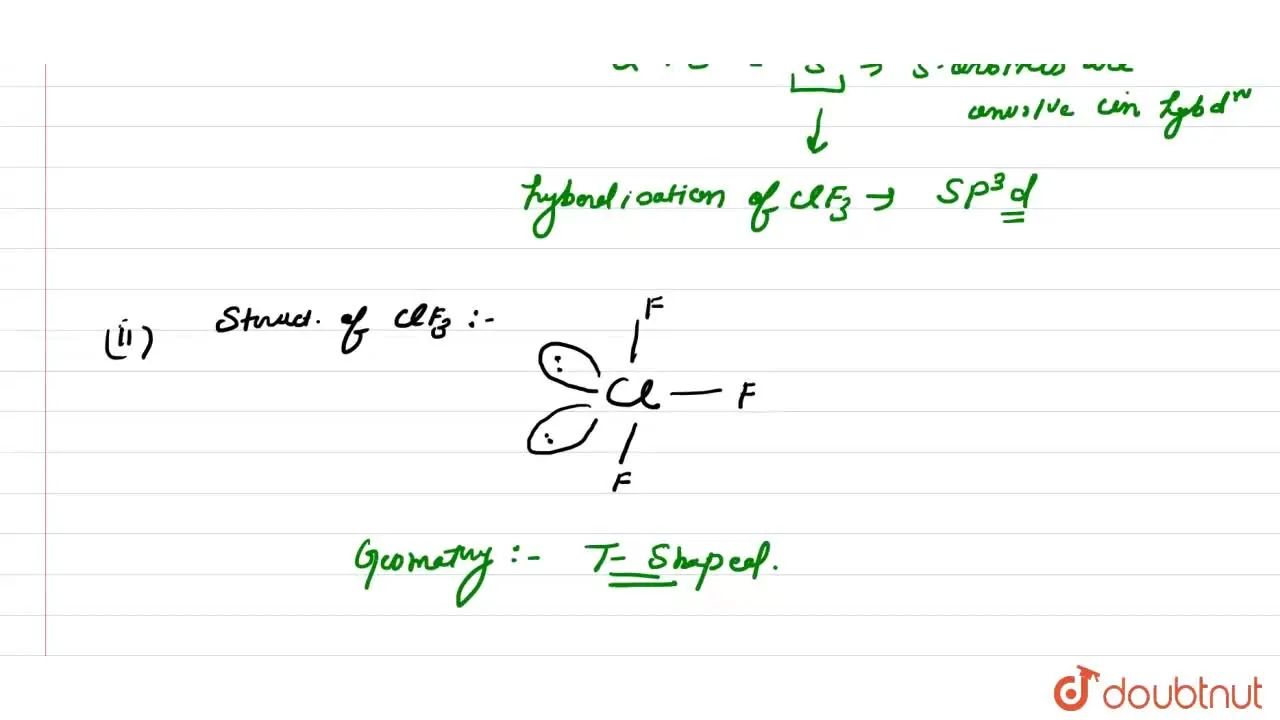 involve in hybdⁿ
hyberdisation of ClF₃ → SP³d
(ii) Struct. of ClF₃ :-
F
Cl — F
F
Geometry :- T- Shaped.
doubtnut